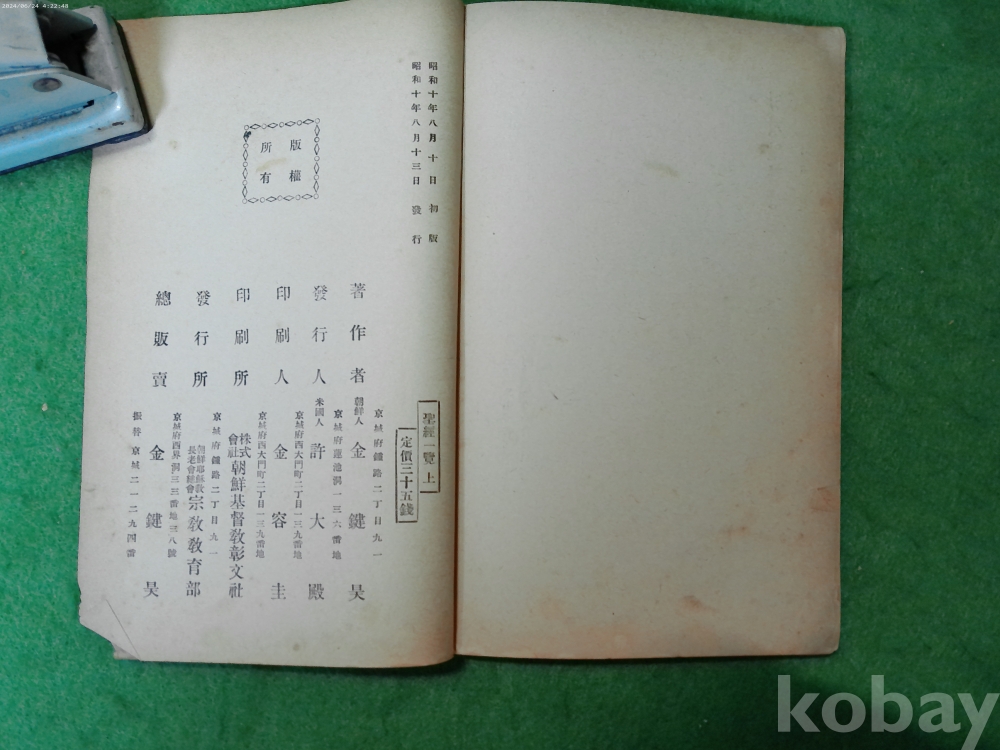 2024/06/24 4:22:48
昭和十年八月十日 初版
昭和十年八月十三日 發行
版權
所有
聖經一覽 上
定價三十五錢
京城府鍾路二丁目九一
著作者 朝鮮人 金鍵昊
京城府蓮池洞一三六番地
發行人 米國人 許大殿
京城府西大門町二丁目一三九番地
印刷人 金容圭
京城府西大門町二丁目一三九番地
印刷所 株式會社 朝鮮基督敎彰文社
京城府鍾路二丁目九一
發行所 朝鮮耶穌敎長老會總會 宗敎敎育部
京城府西界洞三三番地三八號
總販賣 金鍵昊
振替京城二一二九四番
kobay